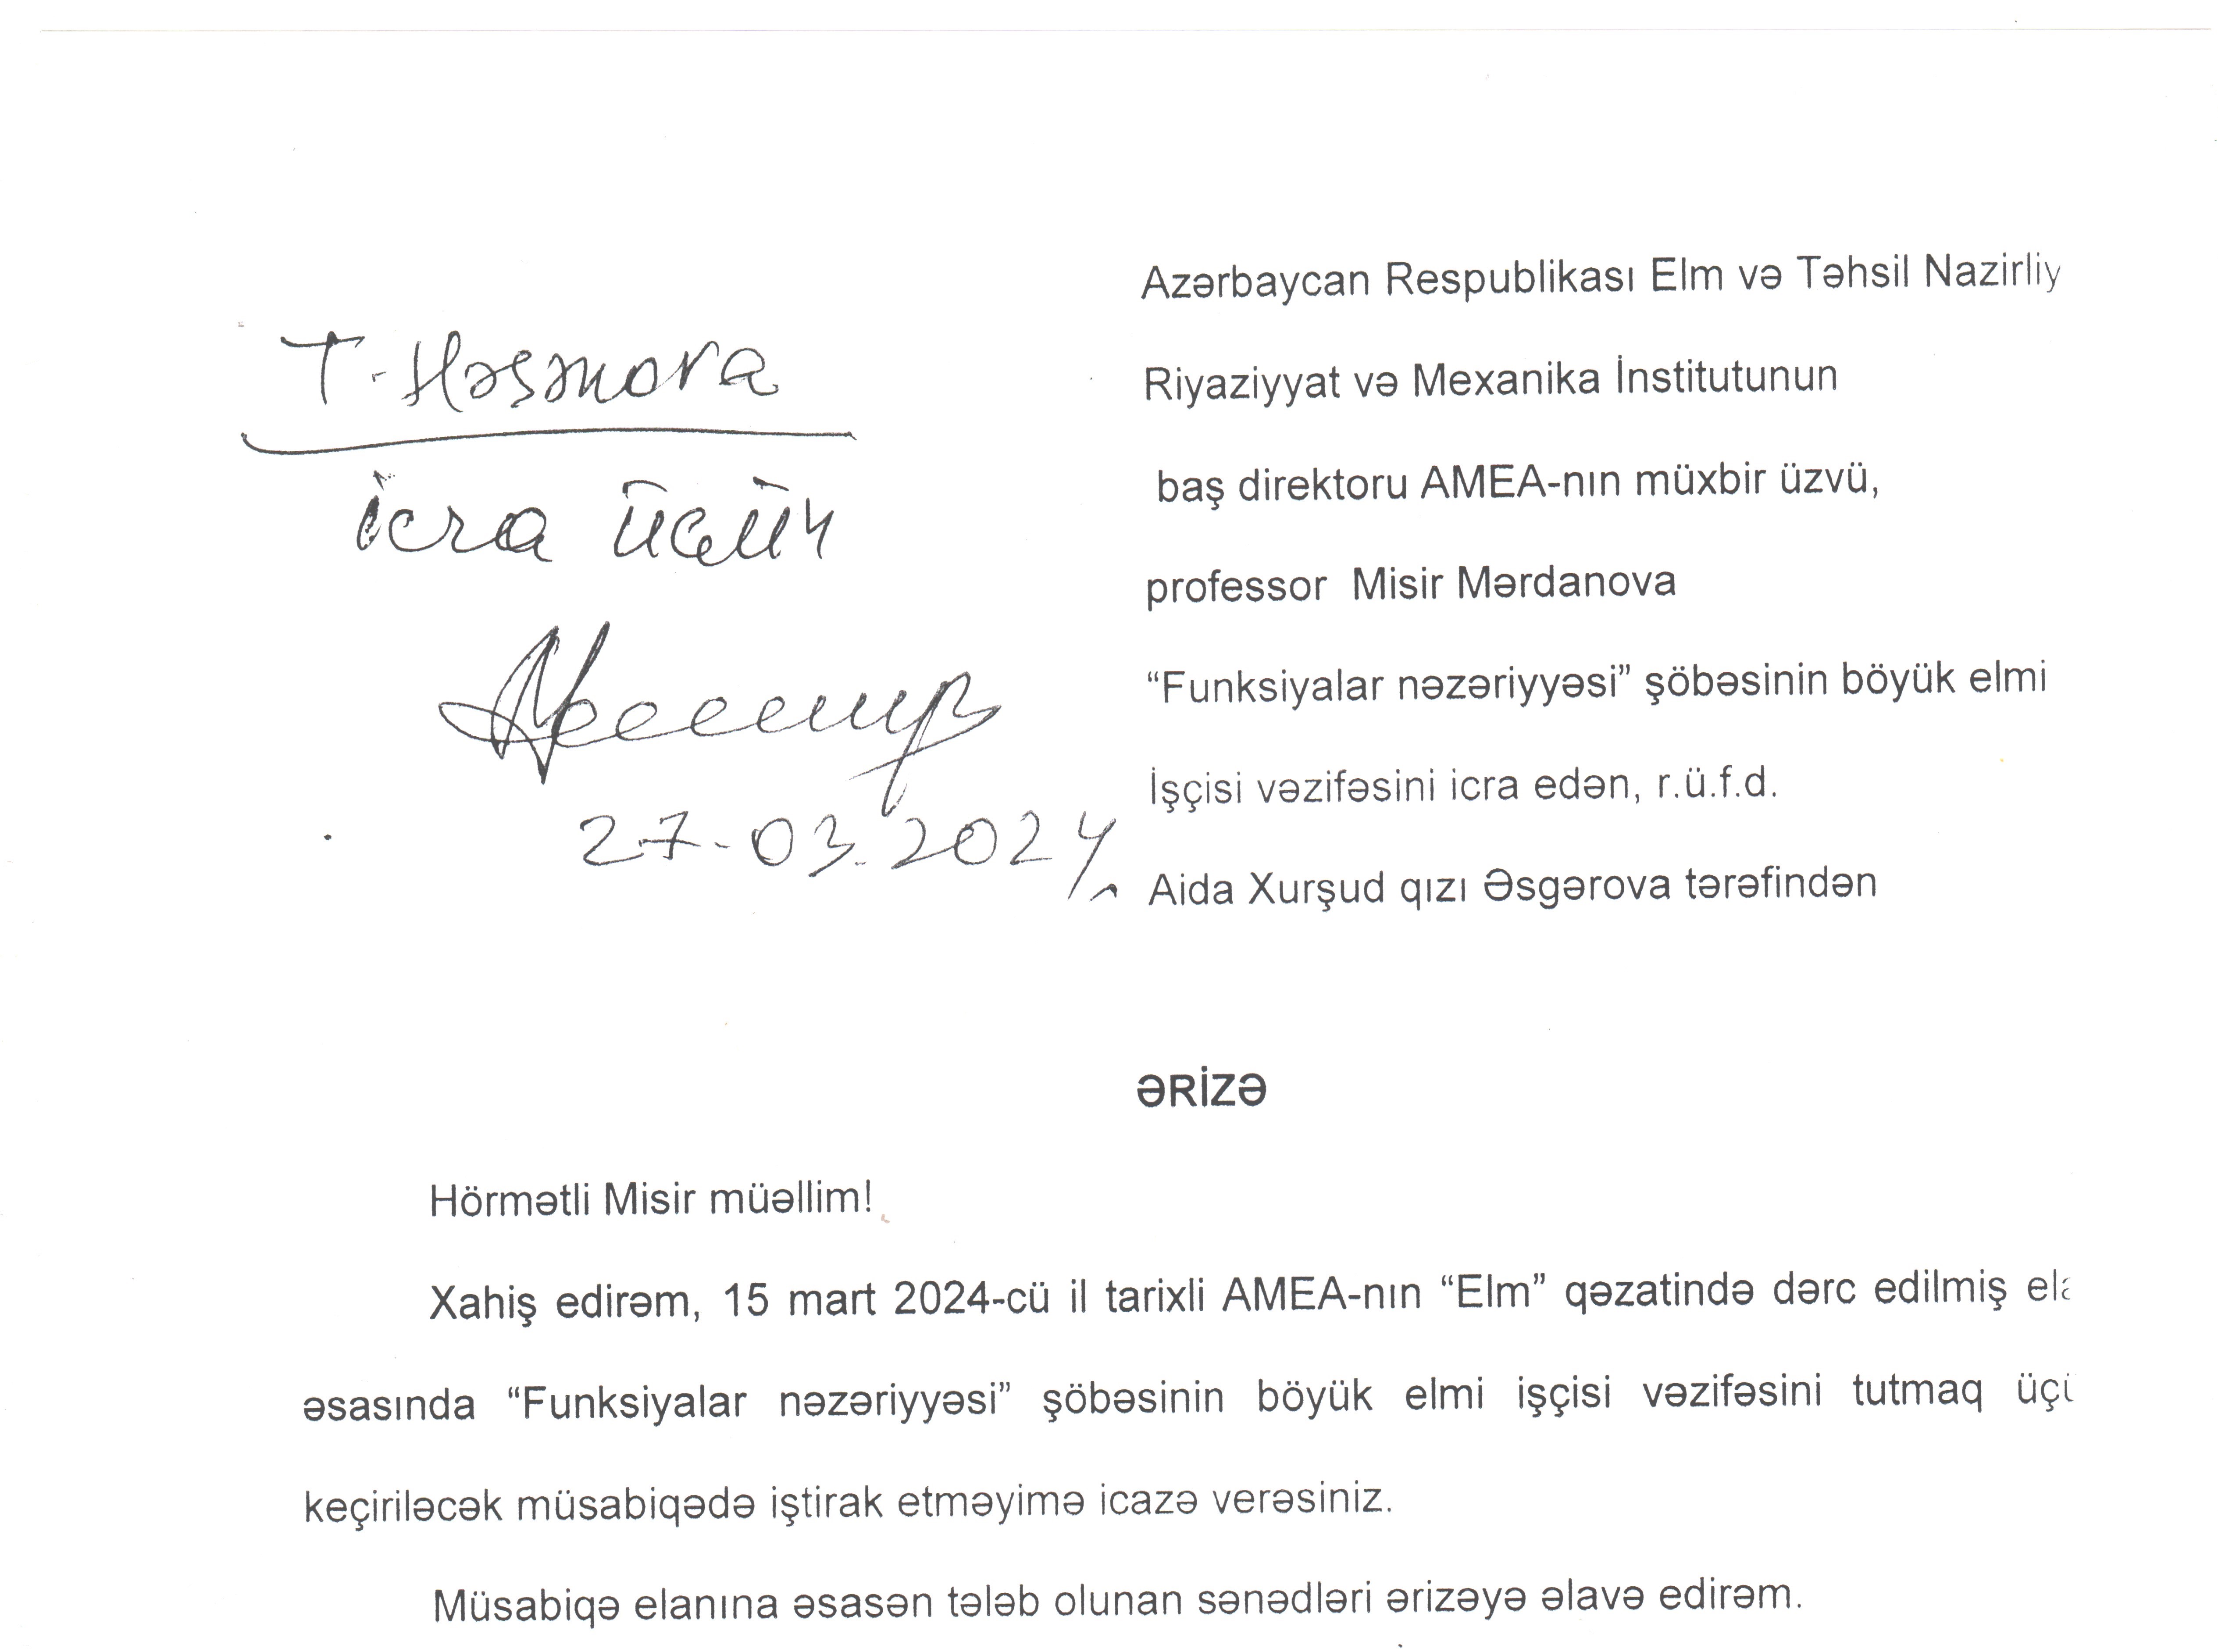 T. Həşimova
icra üçün
27.03.2024
Azərbaycan Respublikası Elm və Təhsil Nazirliy
Riyaziyyat və Mexanika İnstitutunun
baş direktoru AMEA-nın müxbir üzvü,
professor Misir Mərdanova
“Funksiyalar nəzəriyyəsi” şöbəsinin böyük elmi
İşçisi vəzifəsini icra edən, r.ü.f.d.
Aida Xurşud qızı Əsgərova tərəfindən
ƏRİZƏ
Hörmətli Misir müəllim!
Xahiş edirəm, 15 mart 2024-cü il tarixli AMEA-nın “Elm” qəzatində dərc edilmiş
əsasında “Funksiyalar nəzəriyyəsi” şöbəsinin böyük elmi işçisi vəzifəsini tutmaq üçi
keçiriləcək müsabiqədə iştirak etməyimə icazə verəsiniz.
Müsabiqə elanına əsasən tələb olunan sənədləri ərizəyə əlavə edirəm.